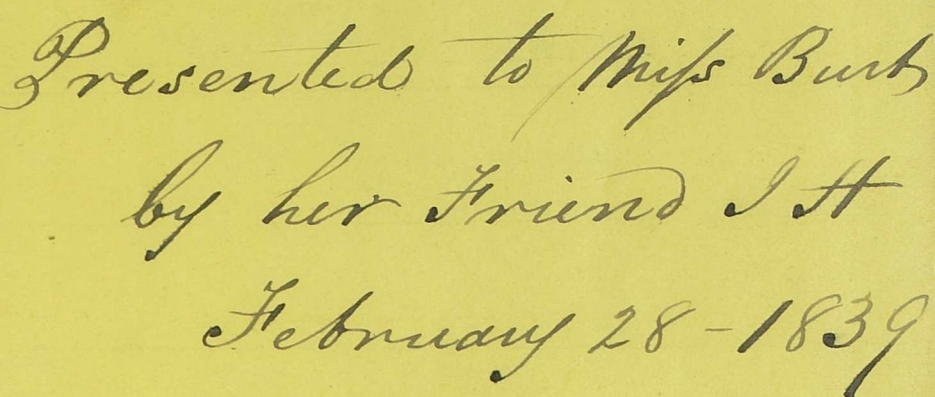 Presented to Miss Burt
by her Friend I H
February 28 - 1839